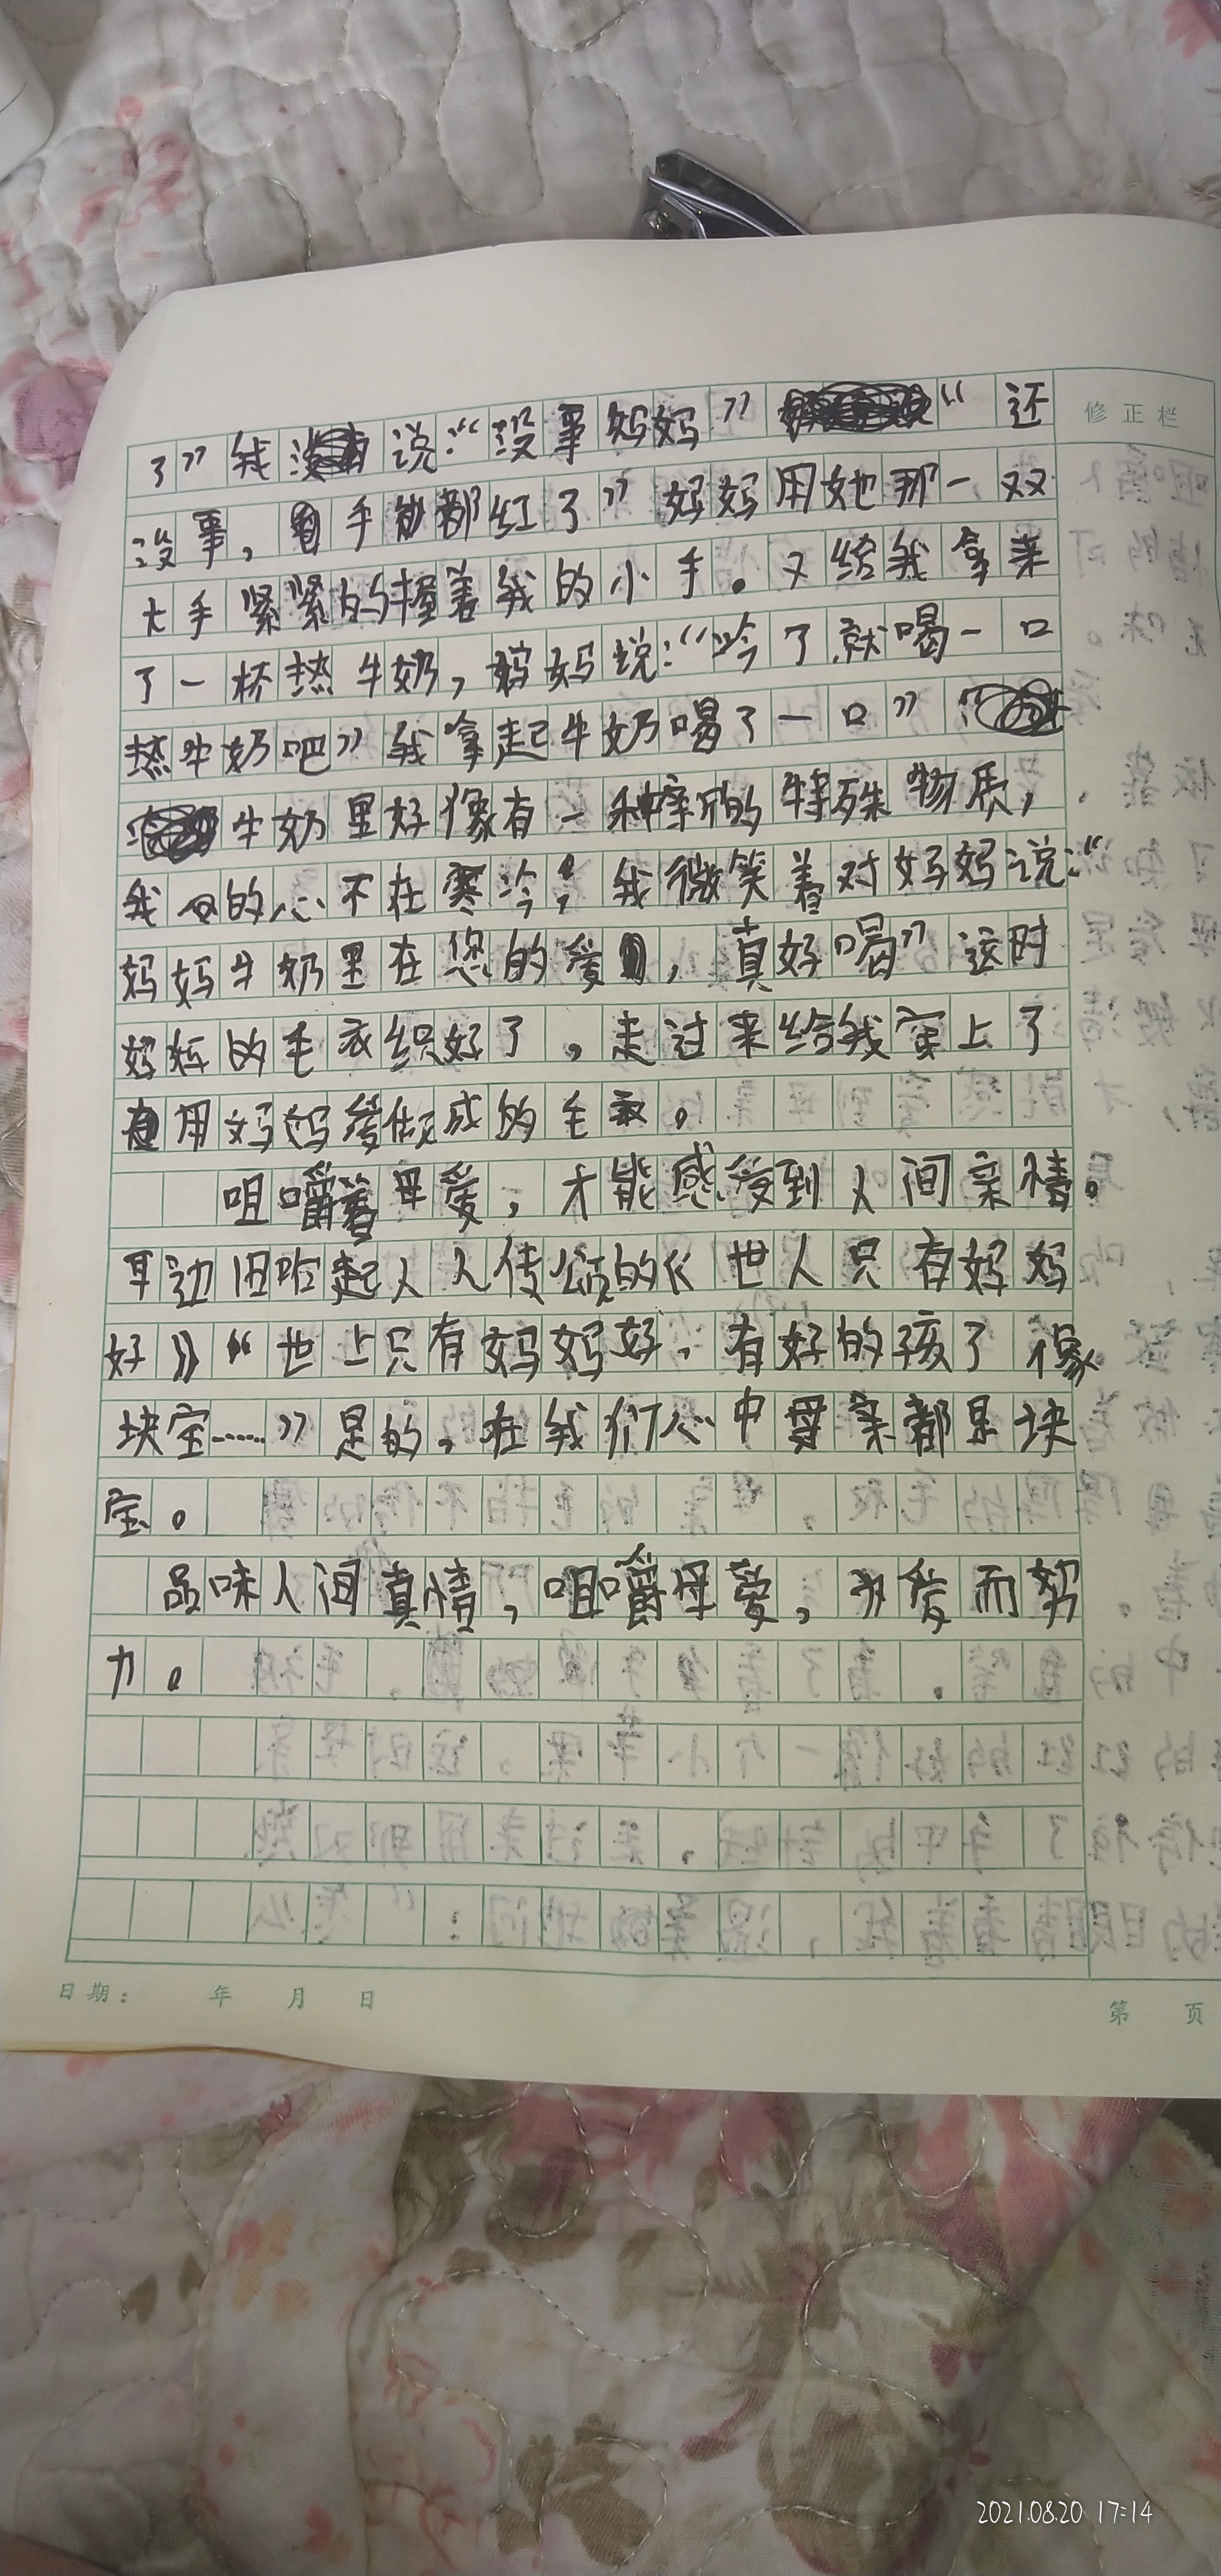 了”我说:“没事妈妈”“还
修正栏
没事,手都红了”妈妈用她那一双
大手紧紧的握着我的小手。又给我拿来
了一杯热牛奶,妈妈说:“冷了就喝一口
热牛奶吧”我拿起牛奶喝了一口”
牛奶里好像有一种特殊物质,
我的心不在寒冷,我微笑着对妈妈说:“
妈妈牛奶里在您的爱,真好喝”这时
妈妈的毛衣织好了,走过来给我穿上了
用妈妈爱做成的毛衣。
咀嚼着母爱,才能感受到人间亲情。
耳边旧响起人人传颂的《世人只有妈妈
好》“世上只有妈妈好,有好的孩子像
块宝……”是的,在我们心中母亲都是块
宝。
品味人间真情,咀嚼母爱,为爱而努
力。
日期: 年 月 日
第 页
2021.08.20 17:14